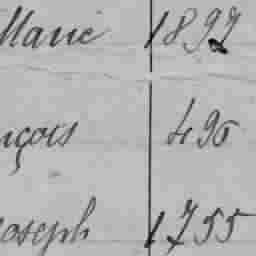 Marie 1892
nçois 496
Joseph 1755